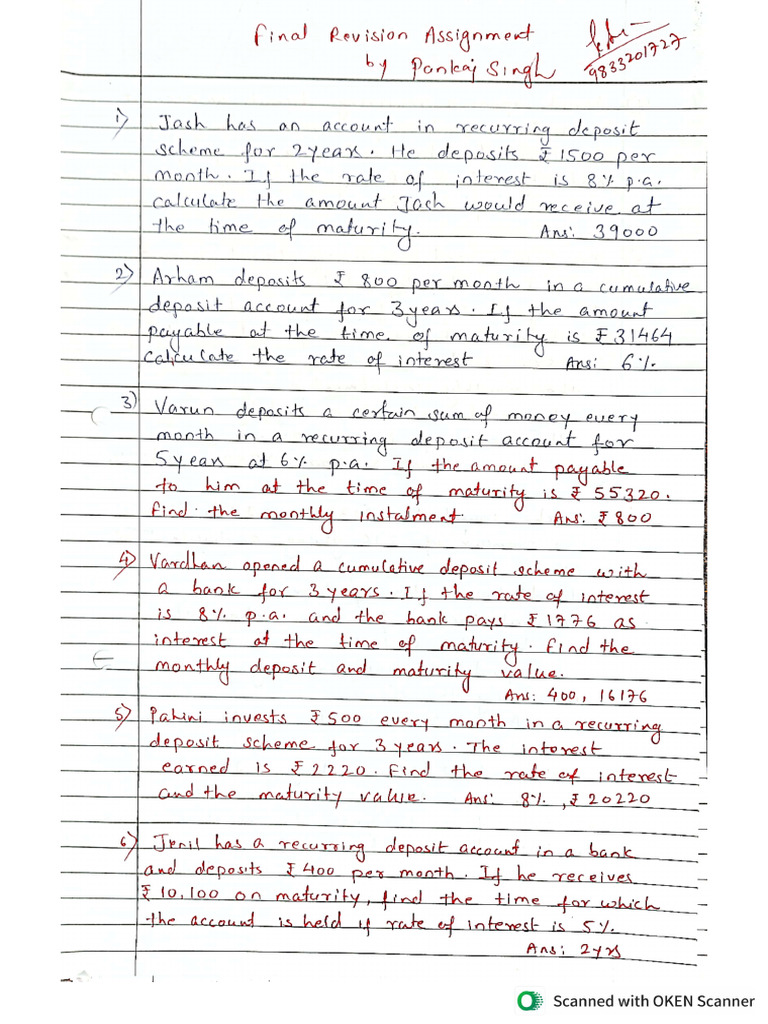 Final Revision Assignment
by Pankaj Singh
9833201727
1) Jash has an account in recurring deposit
scheme for 2 years. He deposits ₹ 1500 per
month. If the rate of interest is 8% p.a.
calculate the amount Jash would receive at
the time of maturity. Ans: 39000
2) Arham deposits ₹ 800 per month in a cumulative
deposit account for 3 years. If the amount
payable at the time of maturity is ₹ 31464
Calculate the rate of interest Ans: 6%
3) Varun deposits a certain sum of money every
month in a recurring deposit account for
5 years at 6% p.a. If the amount payable
to him at the time of maturity is ₹ 55320.
Find the monthly instalment Ans: ₹800
4) Vardhan opened a cumulative deposit scheme with
a bank for 3 years. If the rate of interest
is 8% p.a. and the bank pays ₹1776 as
interest at the time of maturity. Find the
monthly deposit and maturity value.
Ans: 400, 16176
5) Pahini invests ₹500 every month in a recurring
deposit scheme for 3 years. The interest
earned is ₹2220. Find the rate of interest
and the maturity value. Ans: 8%, ₹20220
6) Jenil has a recurring deposit account in a bank
and deposits ₹400 per month. If he receives
₹10,100 on maturity, find the time for which
the account is held if rate of interest is 5%.
Ans: 2yrs
Scanned with OKEN Scanner